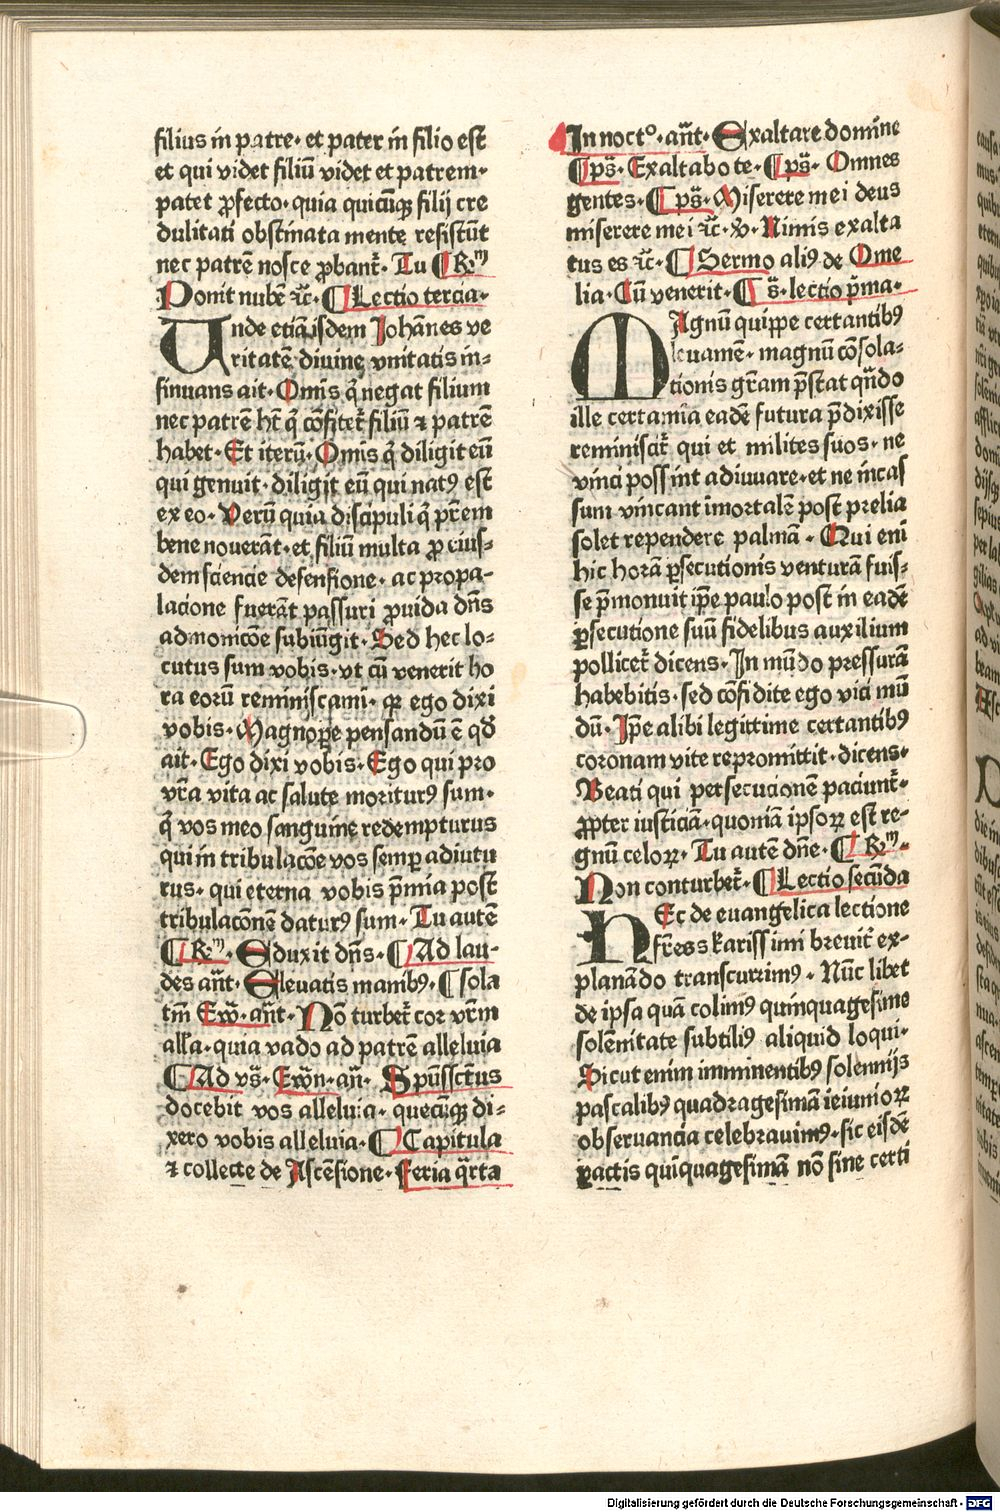 filius in patre· et pater in filio est
et qui videt filiū videt et patrem·
patet ꝓfecto· quia quicūqꝫ filij cre
dulitati obstinata mente resistūt
nec patrē nosce ꝓbant᷑· Tu ¶ R᷑m
Ponit nubē ꝛc̄· ¶ Lectio tercia·
Unde etiā isdem Johānes ve
ritatē divine vnitatis in⸗
sinuans ait· Omīs q̄ negat filium
nec patrē hꝫ q̄ cōfitet᷑ filiū ⁊ patrē
habet· Et iterū· Omīs q̄ diligit eū
qui genuit· diligit eū qui natꝰ est
ex eo· Verū quia discipuli q̄ pr̄em
bene noverāt· et filiū multa ꝓ eius⸗
dem sciencie defensione· ac propa⸗
lacione fuerāt passuri ꝓuida dn̄s
admonicōe subiūgit· Sed hec lo⸗
cutus sum vobis· vt cū venerit ho
ra eorū reminiscami· qꝛ ego dixi
vobis· Magnoꝑe pensandū ē qđ
ait· Ego dixi vobis· Ego qui pro
vr̄a vita ac salute moriturꝰ sum·
q̄ vos meo sanguine redempturus
qui in tribulacōe vos semꝑ adiutu
rus· qui eterna vobis p̄mia post
tribulacōnē daturꝰ sum· Tu autē
¶ R᷑m· Eduxit dn̄s· ¶ Ad lau⸗
des an̄t· Elevatis manibꝰ· ¶ sola
tm̄ Ew̄· an̄t· Nō turbet᷑ cor vr̄m
all̄a· quia vado ad patrē alleluia
¶ Ad vs̄· Ew̄n· an̄· Spūssctūs
docebit vos alleluia· quecūqꝫ di⸗
xero vobis alleluia· ¶ Capitula
⁊ collecte de Ascēsione· Feria q̄rta
In noctº· an̄t· Exaltare domine
¶ ps̄· Exaltabo te· ¶ ps̄· Omnes
gentes· ¶ ps̄· Miserere mei deus
miserere mei ꝛc̄· ꝟ· Nimis exalta
tus es ꝛc̄· ¶ Sermo aliꝰ de Ome
lia· Cū venerit· ¶ s̄· lectio p̄ma·
MAgnū quippe certantibꝰ
levamē· magnū cōsola⸗
tionis gr̄am p̄stat qn̄do
ille certamīa eadē futura p̄dixisse
reminiscit᷑ qui et milites suos· ne
vinci possint adiuvare· et ne incas
sum vincant imortalē post prelia
solet rependere palmā· Qui enī
hic horā ꝑsecutionis venturā fuis⸗
se p̄monuit ip̄e paulo post in eadē
ꝑsecutione suū fidelibus auxilium
pollicet᷑ dicens· In mūdo pressurā
habebitis· sed cōfidite ego vici mū
dū· Ip̄e alibi legittime certantibꝰ
coronam vite repromittit· dicens·
Beati qui persecucionē paciunt᷑·
ꝓpter iusticiā· quoniā ipsoꝝ est re⸗
gnū celoꝝ· Tu autē dn̄e· ¶ R᷑m·
Non conturbet᷑· ¶ Lectio secūda
HEc de euangelica lectione
fr̄es karissimi breuit᷑ ex⸗
planādo transcurrimꝰ· Nūc libet
de ipsa quā colimꝰ quinquagesime
solēnitate subtiliꝰ aliquid loqui·
Sicut enim imminentibꝰ solennijs
pascalibꝰ quadragesimā ieiunioꝝ
observancia celebravimꝰ· sic eisdē
ꝑactis quīquagesimā nō sine certi
Digitalisierung gefördert durch die Deutsche Forschungsgemeinschaft - DFG